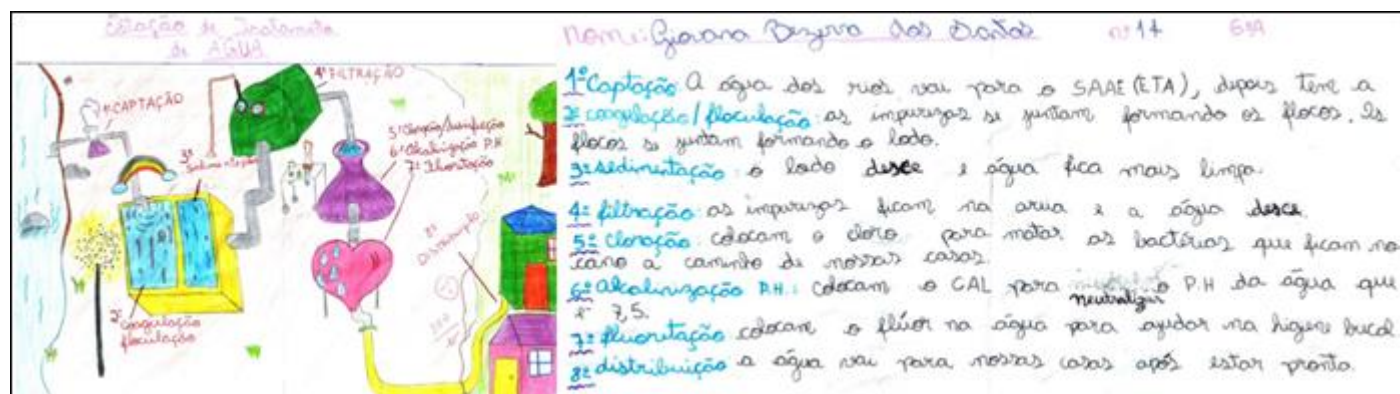 Estação de Tratamento
de ÁGUA
1º CAPTAÇÃO
4º FILTRAÇÃO
3º
Sedimentação
5º Cloração/Desinfecção
6º Alcalinização P.H
7º Fluoretação
8º
DISTRIBUIÇÃO
2º Coagulação
floculação
Nome: Giovana Bezerra dos Santos nº 17
1º Captação: A água dos rios vai para o SAAE (ETA), depois tem a
2º coagulação/floculação: as impurezas se juntam formando os flocos. Os
flocos se juntam formando o lodo.
3º sedimentação: o lodo desce e água fica mais limpa.
4º filtração: as impurezas ficam na areia e a água desce.
5º Cloração: colocam o cloro para matar as bactérias que ficam no
cano a caminho de nossas casas.
6º Alcalinização P.H.: colocam o CAL para neutralizar o P.H da água que
é 7,5.
7º fluoretação colocam o flúor na água para ajudar na higiene bucal
8º distribuição a água vai para nossas casas após estar pronta.